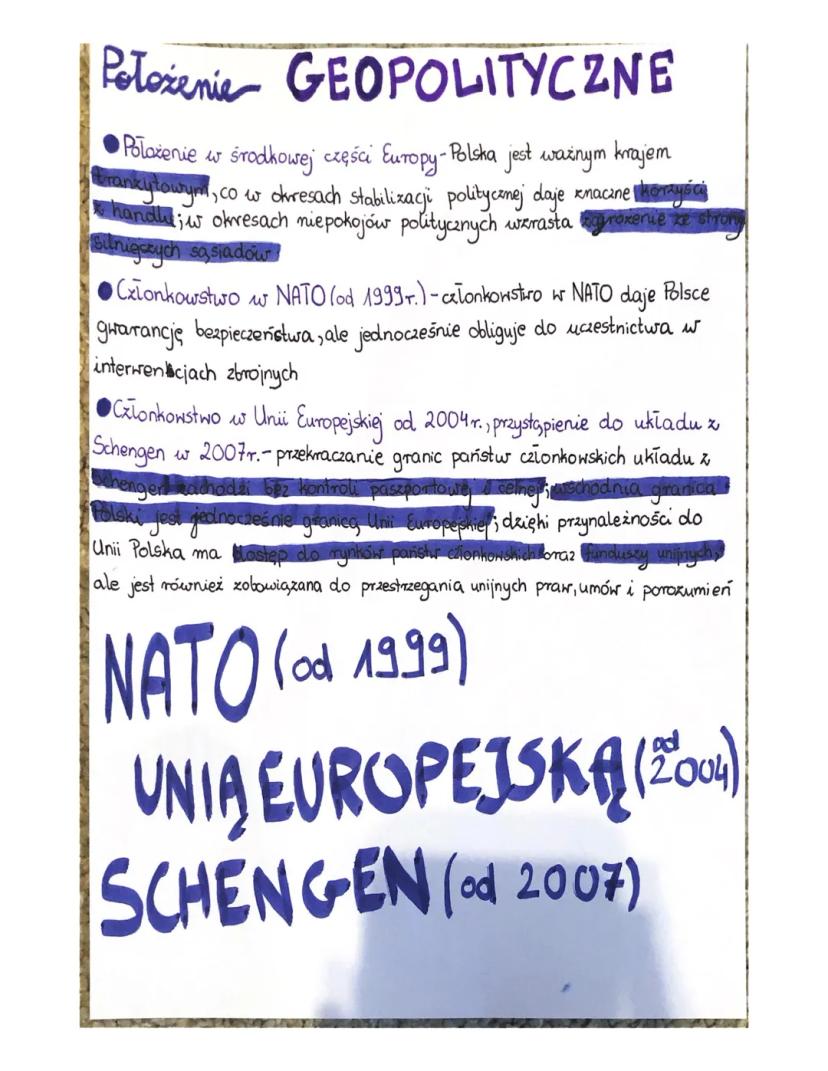 Położenie GEOPOLITYCZNE
● Położenie w środkowej części Europy - Polska jest ważnym krajem
tranzytowym, co w okresach stabilizacji politycznej daje znaczne korzyści
z handlu; w okresach niepokojów politycznych wzrasta zagrożenie ze strony
silniejszych sąsiadów
● Członkowstwo w NATO (od 1999r.) - członkowstwo w NATO daje Polsce
gwarancję bezpieczeństwa, ale jednocześnie obliguje do uczestnictwa w
interwencjach zbrojnych
● Członkowstwo w Unii Europejskiej od 2004r., przystąpienie do układu z
Schengen w 2007r. - przekraczanie granic państw członkowskich układu z
Schengen zachodzi bez kontroli paszportowej i celnej; wschodnia granica
Polski jest jednocześnie granicą Unii Europejskiej; dzięki przynależności do
Unii Polska ma dostęp do rynków państw członkowskich oraz funduszy unijnych,
ale jest również zobowiązana do przestrzegania unijnych praw, umów i porozumień
NATO (od 1999)
UNIĄ EUROPEJSKĄ (od 2004)
SCHENGEN (od 2007)